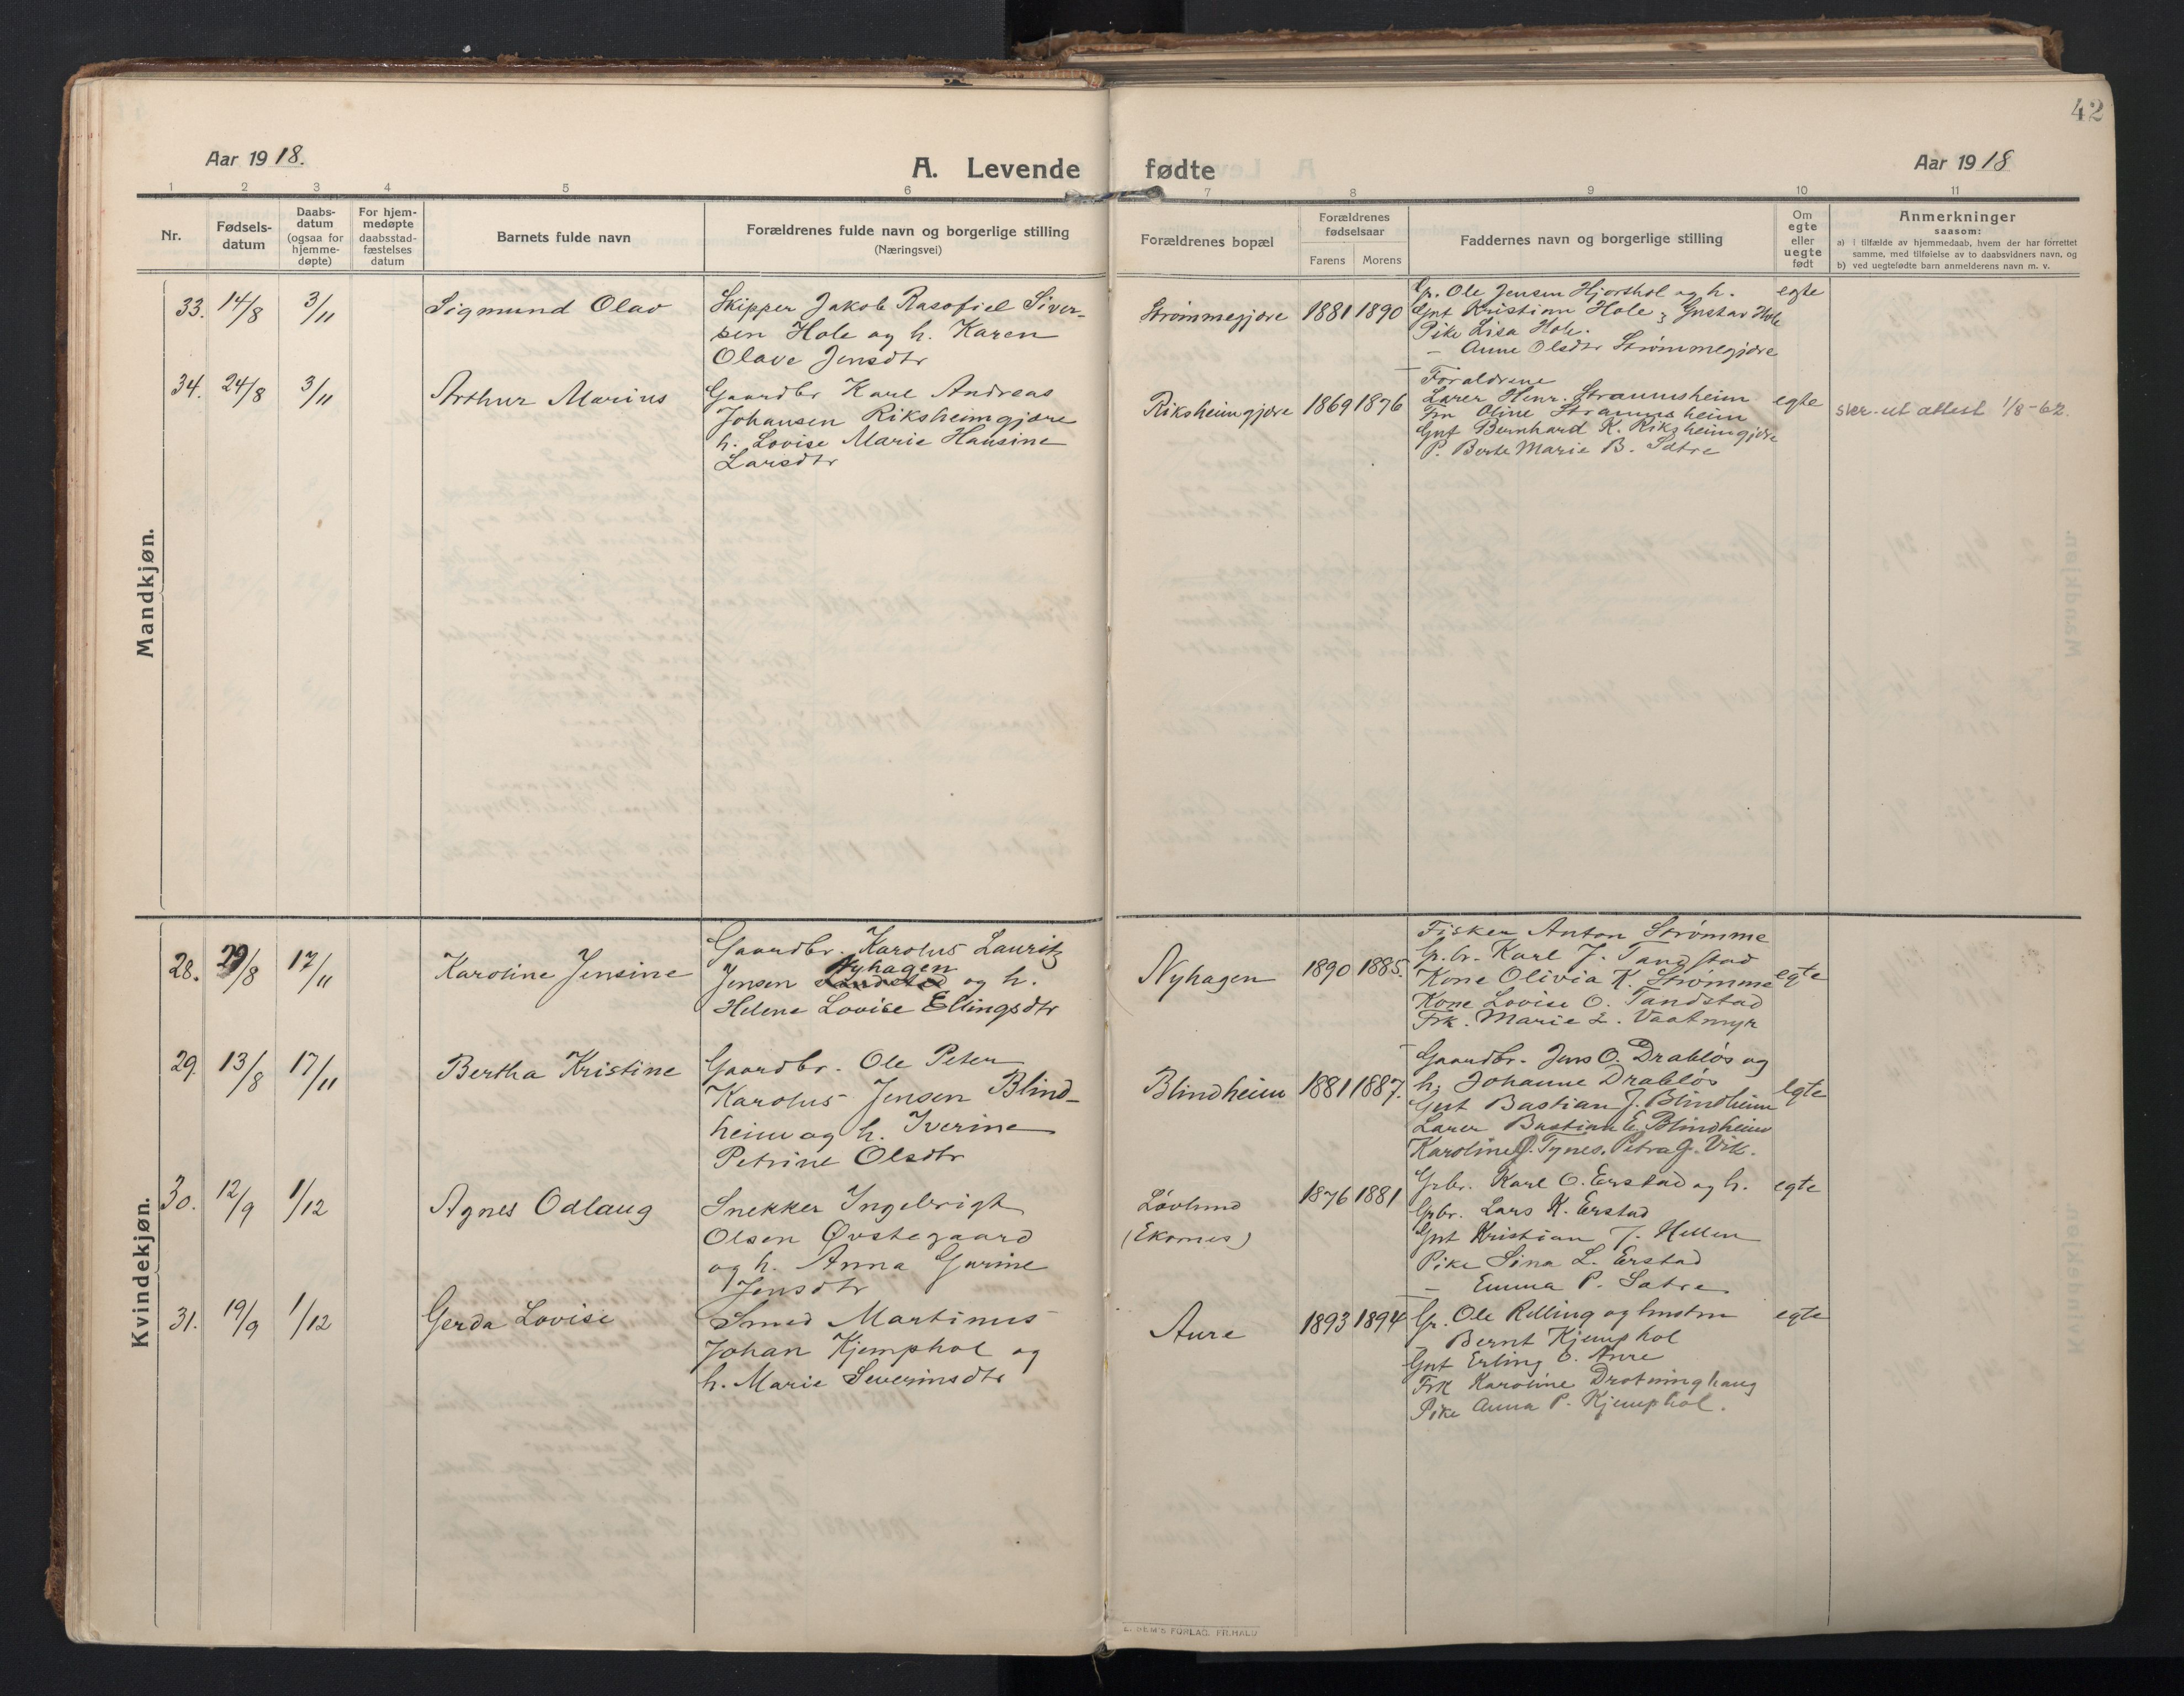 42
Aar 1918.
A. Levende fødte
Aar 1918
1 2 3 4 5 6 7 8 9 10 11
Nr.
Fødsels-
datum
Daabs-
datum
(ogsaa for
hjemme-
døpte)
For hjem-
medøpte
daabsstad-
fæstelses
datum
Barnets fulde navn
Forældrenes fulde navn og borgerlige stilling
(Næringsvei)
Forældrenes bopæl
Forældrenes
fødselsaar
Farens Morens
Faddernes navn og borgerlige stilling
Om
egte
eller
uegte
født
Anmerkninger
saasom:
a) i tilfælde av hjemmedaab, hvem der har forrettet
samme, med tilføielse av to daabsvidners navn, og
b) ved uegtefødte barn anmelderens navn m. v.
Mandkjøn.
33. 14/8 3/11
Sigmund Olav
Skipper Jakob Rasofiel Siver-
sen Hole og h. Karen
Olave Jensdtr
Strømmegjære
1881 1890
Gr. Ole Jensen Hjorthol og h.
Gut Kristian Hole, Gustav Hole
Pike Lisa Hole.
– Anne Olsdtr Strømmegjære
egte
34. 24/8 3/11
Arthur Marius
Gaardbr Karl Andreas
Johansen Riksheimgjære
h. Lovise Marie Hansine
Larsdtr
Riksheimgjære
1869 1876
Foraldrene
Lærer Henr. Straumsheim
Fru Oline Straumsheim
Gut Bernhard K. Riksheimgjære
P. Berte Marie B. Sætre
egte
skr. ut attest 1/8-62.
Kvindekjøn.
28. 29/8 17/11
Karoline Jensine
Gaardbr. Karolus Lauritz
Nyhagen
Jensen og h.
Helene Lovise Ellingsdtr
Nyhagen
1890 1885.
Fisker Anton Strømme
G.br. Karl J. Tandstad
Kone Olivia K. Strømme
Kone Lovise O. Tandstad
Frk. Marie L. Vaatmyr
egte
29. 13/8 17/11
Bertha Kristine
Gaardbr. Ole Peter
Karolus Jensen Blind-
heim og h. Iverine
Petrine Olsdtr
Blindheim
1881 1887.
Gaardbr. Jens O. Drabløs og
h. Johanne Drabløs
Gut Bastian J. Blindheim
Lærer Bastian E. Blindheim
Karoline J. Tynes. Petra G. Vik.
egte
30. 12/9 1/12
Agnes Odlaug
Snekker Ingebrigt
Olsen Øvstegaard
og h. Anna Gurine
Jensdtr
Løvlund
(Ekornes)
1876 1881
Grbr. Karl O. Erstad og h.
Grbr. Lars K. Erstad
Gut Kristian J. Hellen
Pike Lina L. Erstad
– Emma P. Sætre
egte
31. 19/9 1/12
Gerda Lovise
Smed Martinus
Johan Kjemphol og
h. Marie Severinsdtr
Aure
1893 1894
Gr. Ole Relling og hustru
Bernt Kjemphol
Gut Erling O. Aure
Frk Karoline Drotninghaug
Pike Anna P. Kjemphol.
egte